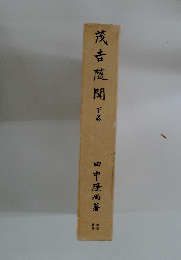 茂吉随聞
下巻
田中隆尚著